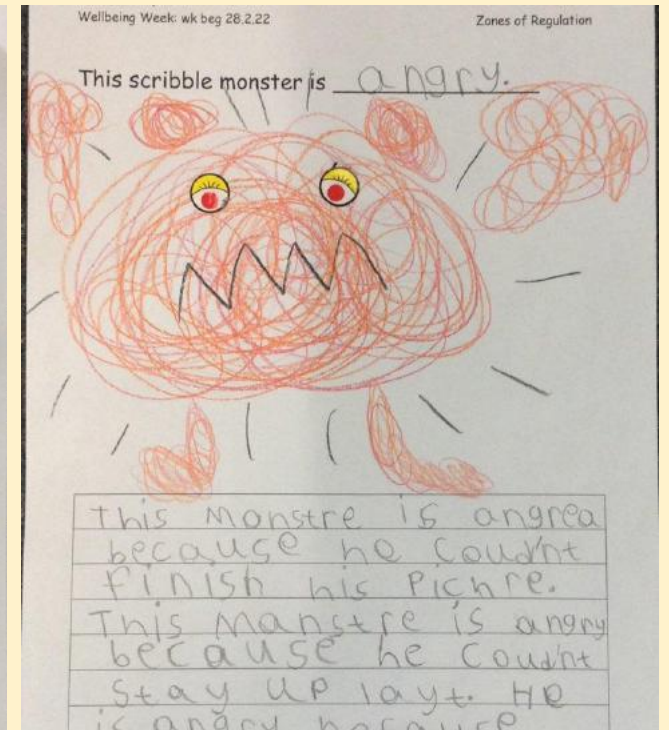 Wellbeing Week: wk beg 28.2.22
Zones of Regulation
This scribble monster is angry.
This Monstre is angrea
because he Coudn't
finish his Pichre.
This Manstre is angry
because he Coudn't
Stay up layt. He
is angry because